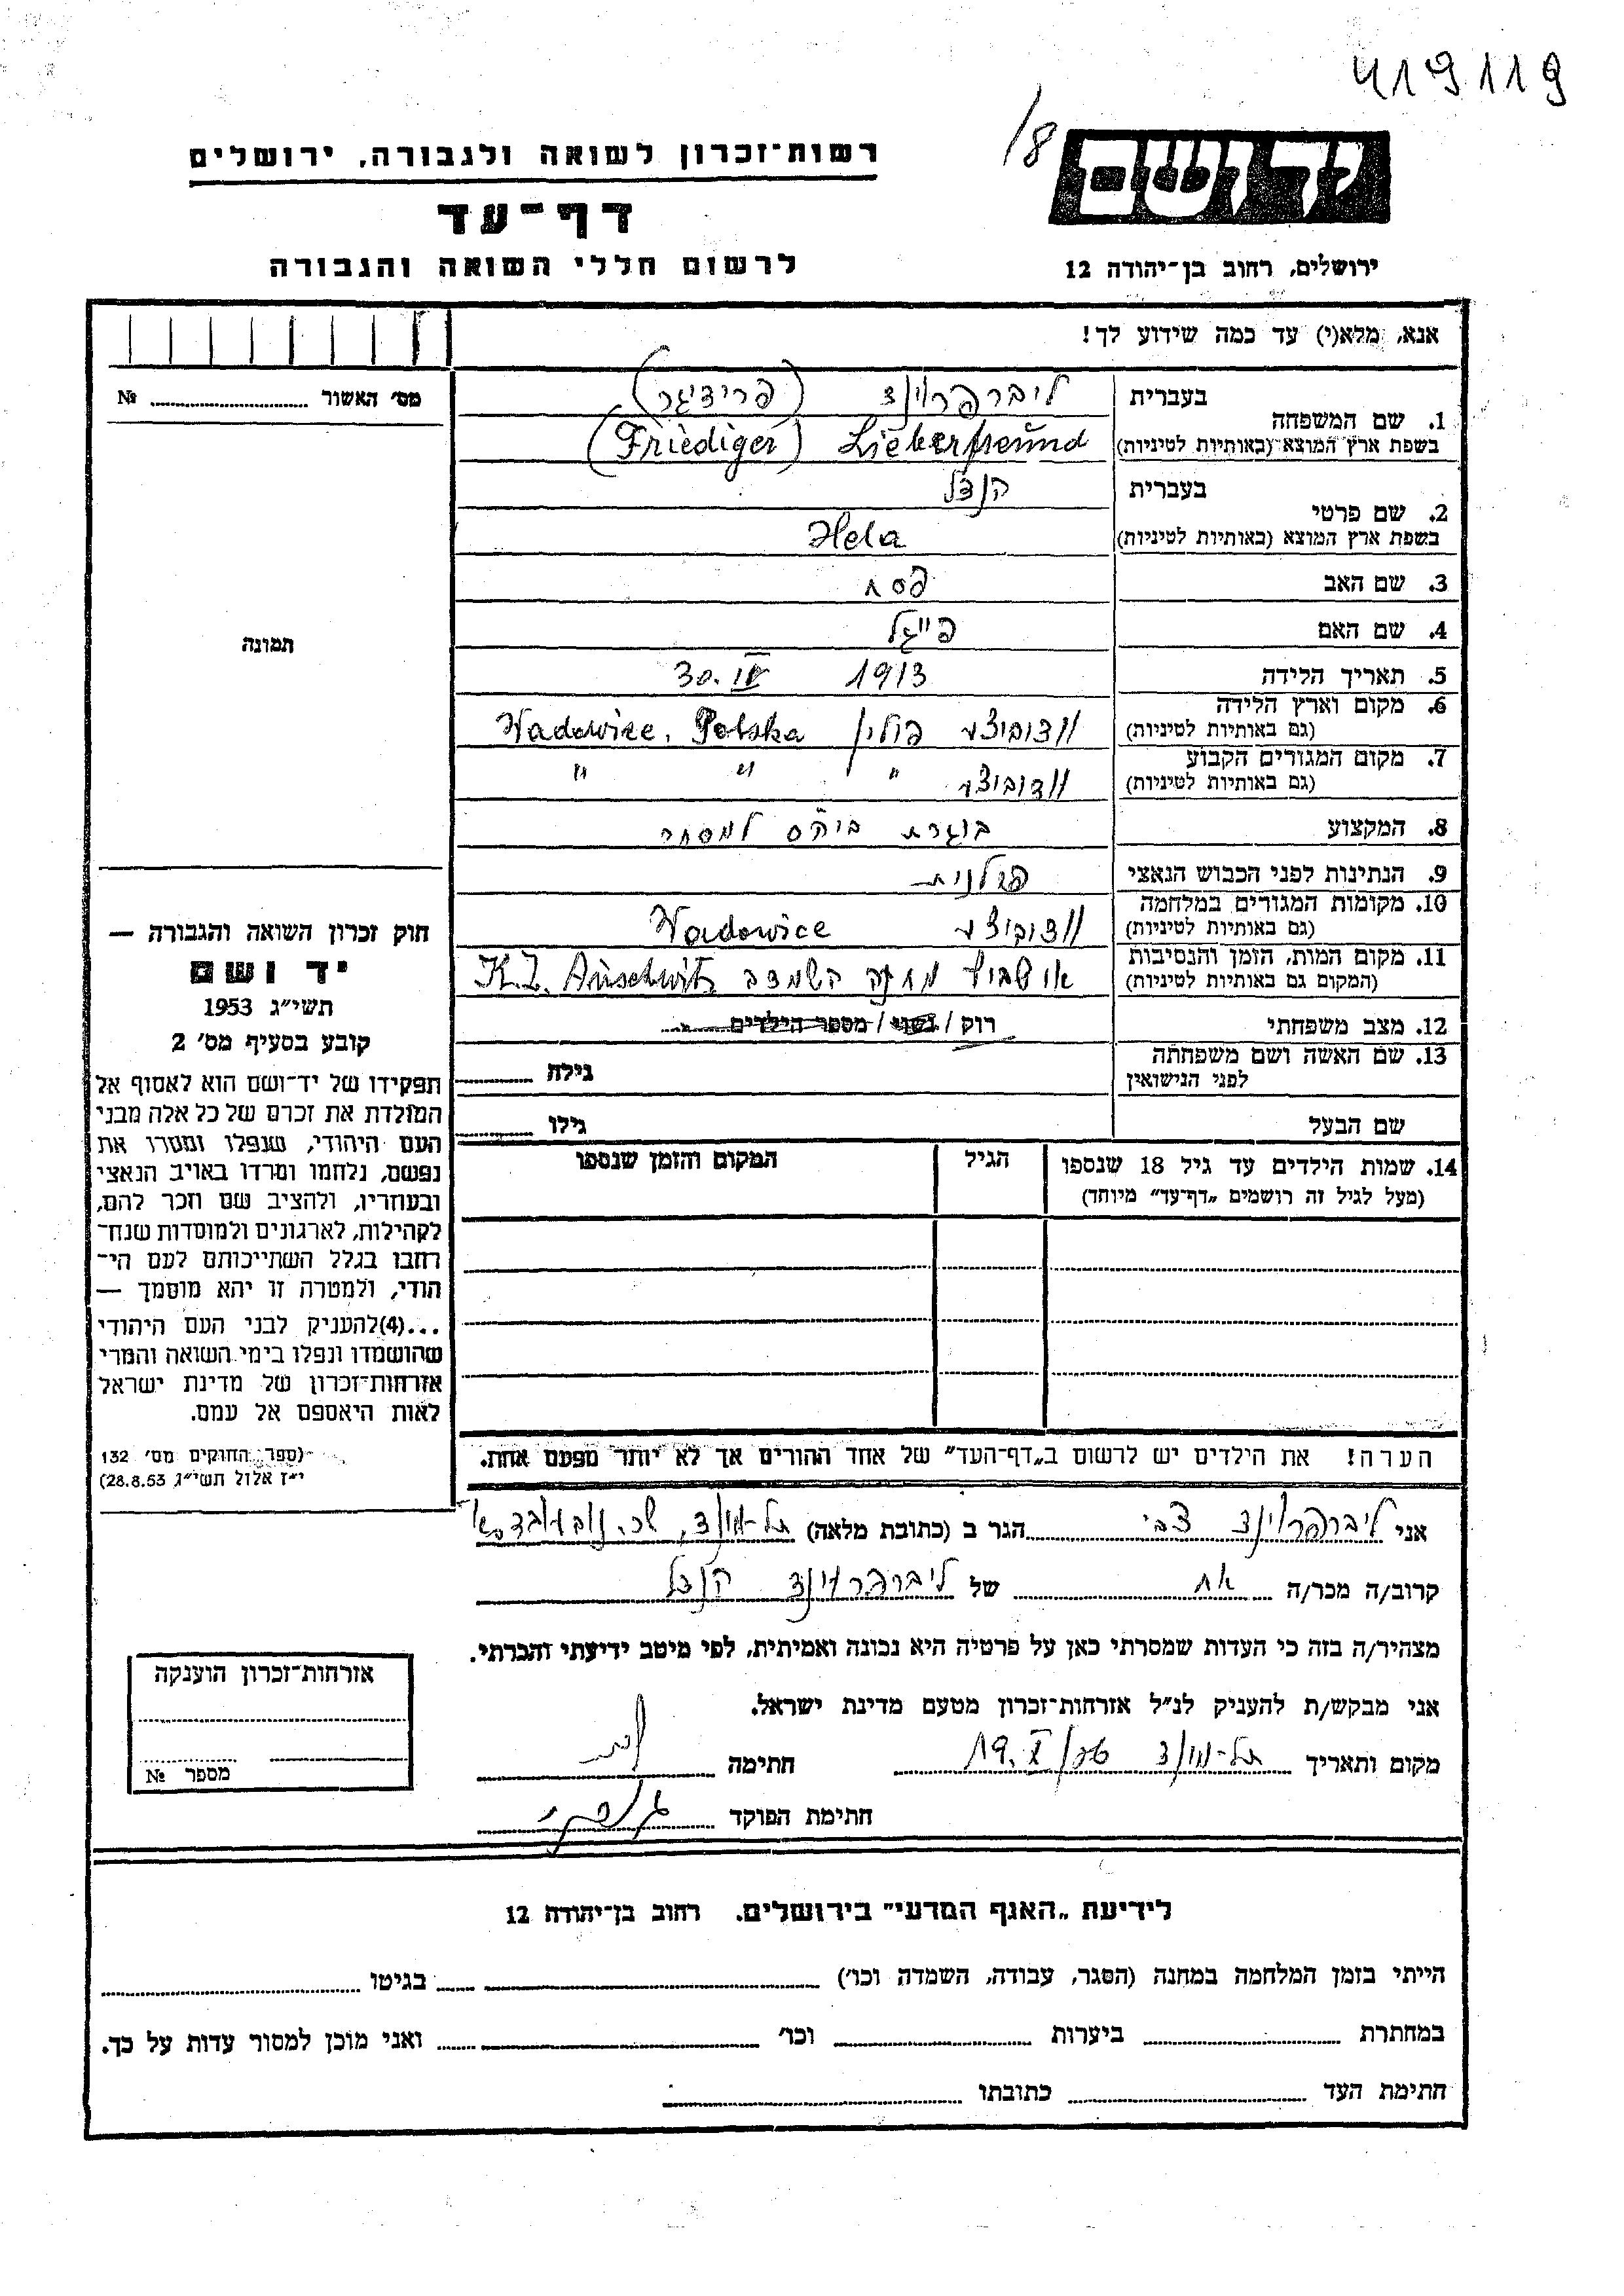 419119
/8
יד ושם
רשות-זכרון לשואה ולגבורה, ירושלים
דף-עד
לרשום חללי השואה והגבורה
ירושלים, רחוב בן-יהודה 12
אנא, מלא(י) עד כמה שידוע לך!
מס' האשור № ........
1. שם המשפחה בעברית ליברפרוינד (פרידיגר)
בשפת ארץ המוצא (באותיות לטיניות) Lieberfreund (Friediger)
2. שם פרטי בעברית הנדל
בשפת ארץ המוצא (באותיות לטיניות) Hela
3. שם האב פסח
4. שם האם פייגל
5. תאריך הלידה 1913 30.IV
6. מקום וארץ הלידה (גם באותיות לטיניות) וודוביצה פולין Wadowice, Polska
7. מקום המגורים הקבוע (גם באותיות לטיניות) וודוביצה " " "
8. המקצוע בוגרת ביה"ס למסחר
9. הנתינות לפני הכבוש הנאצי פולנית
10. מקומות המגורים במלחמה (גם באותיות לטיניות) וודוביצה Wadowice
11. מקום המות, הזמן והנסיבות (המקום גם באותיות לטיניות) אושביץ מחנה השמדה K.Z. Auschwitz
12. מצב משפחתי רוק / נשוי / מספר הילדים ........
13. שם האשה ושם משפחתה לפני הנישואין גילה ........
שם הבעל גילו ........
14. שמות הילדים עד גיל 18 שנספו הגיל המקום והזמן שנספו
(מעל לגיל זה רושמים „דף-עד" מיוחד)
הערה! את הילדים יש לרשום ב„דף-העד" של אחד ההורים אך לא יותר מפעם אחת.
תמונה
חוק זכרון השואה והגבורה —
יד ושם
תשי"ג 1953
קובע בסעיף מס' 2
תפקידו של יד-ושם הוא לאסוף אל
המולדת את זכרם של כל אלה מבני
העם היהודי, שנפלו ומסרו את
נפשם, נלחמו ומרדו באויב הנאצי
ובעוזריו, ולהציב שם וזכר להם,
לקהילות, לארגונים ולמוסדות שנח-
רחבו בגלל השתייכותם לעם הי-
הודי, ולמטרה זו יהא מוסמך —
...(4)להעניק לבני העם היהודי
שהושמדו ונפלו בימי השואה והמרי
אזרחות-זכרון של מדינת ישראל
לאות היאספם אל עמם.
(ספר החוקים מס' 132
י"ז אלול תשי"ג 28.8.53)
אני ליברפרוינד צבי הגר ב (כתובת מלאה) תל-מונד, שכ.
קרוב/ה מכר/ה אח של ליברפרוינד הנדל
מצהיר/ה בזה כי העדות שמסרתי כאן על פרטיה היא נכונה ואמיתית, לפי מיטב ידיעתי והכרתי.
אני מבקש/ת להעניק לנ"ל אזרחות-זכרון מטעם מדינת ישראל.
מקום ותאריך תל-מונד חתימה
חתימת הפוקד
אזרחות-זכרון הוענקה
מספר №
לידיעת „האגף המדעי" בירושלים. רחוב בן-יהודה 12
הייתי בזמן המלחמה במחנה (הסגר, עבודה, השמדה וכו') ........ בגיטו ........
במחתרת ........ ביערות ........ וכו' ........ ואני מוכן למסור עדות על כך.
חתימת העד ........ כתובתו ........